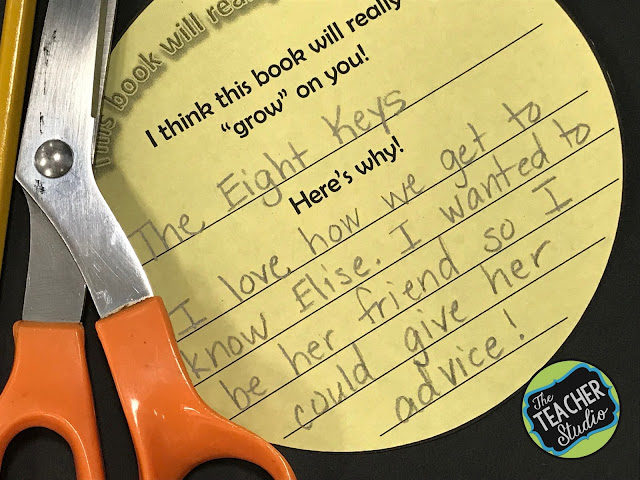 This book will really
I think this book will really
"grow" on you!
The Eight Keys
Here's why!
I love how we get to
know Elise. I wanted to
be her friend so I
could give her
advice!
The
TEACHER
Studio